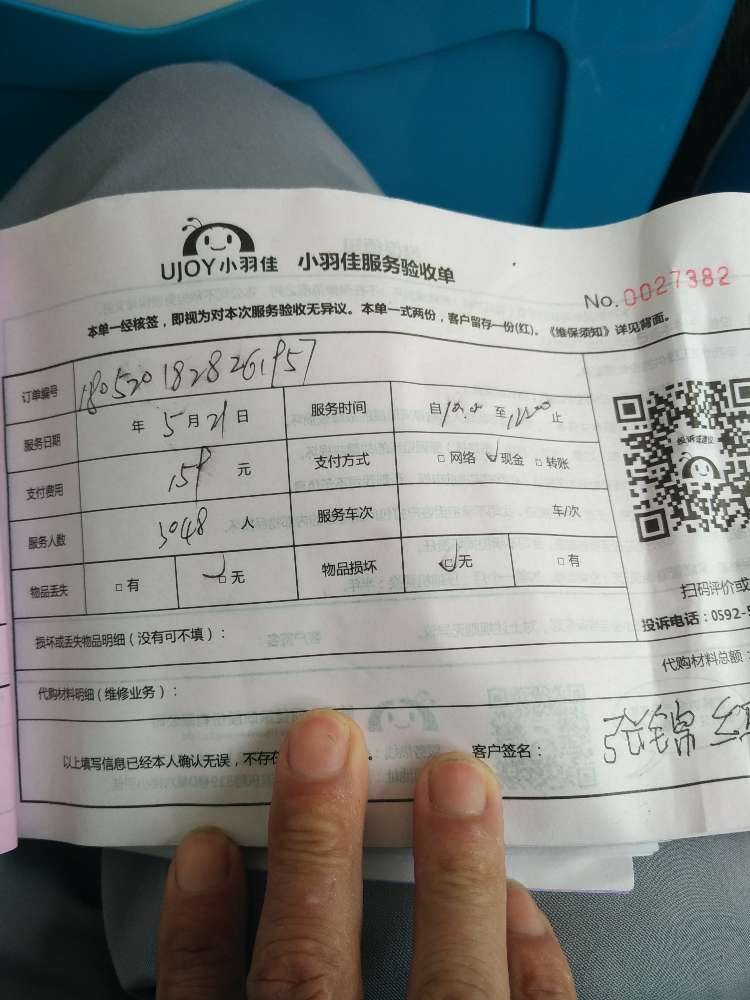 UJOY小羽佳 小羽佳服务验收单
No.0027382
本单一经核签，即视为对本次服务验收无异议。本单一式两份，客户留存一份(红)。《维保须知》详见背面。
订单编号 1805201828261957
服务日期 年 5月21日 服务时间 自 至 止
支付费用 元 支付方式 □网络 □现金 □转账
服务人数 3048 人 服务车次 车/次
物品丢失 □有 □无 物品损坏 □无 □有
投诉或建议
扫码评价或
投诉电话：0592-5
损坏或丢失物品明细（没有可不填）：
代购材料总额：
代购材料明细（维修业务）：
以上填写信息已经本人确认无误，不存在 。 客户签名： 张锦红